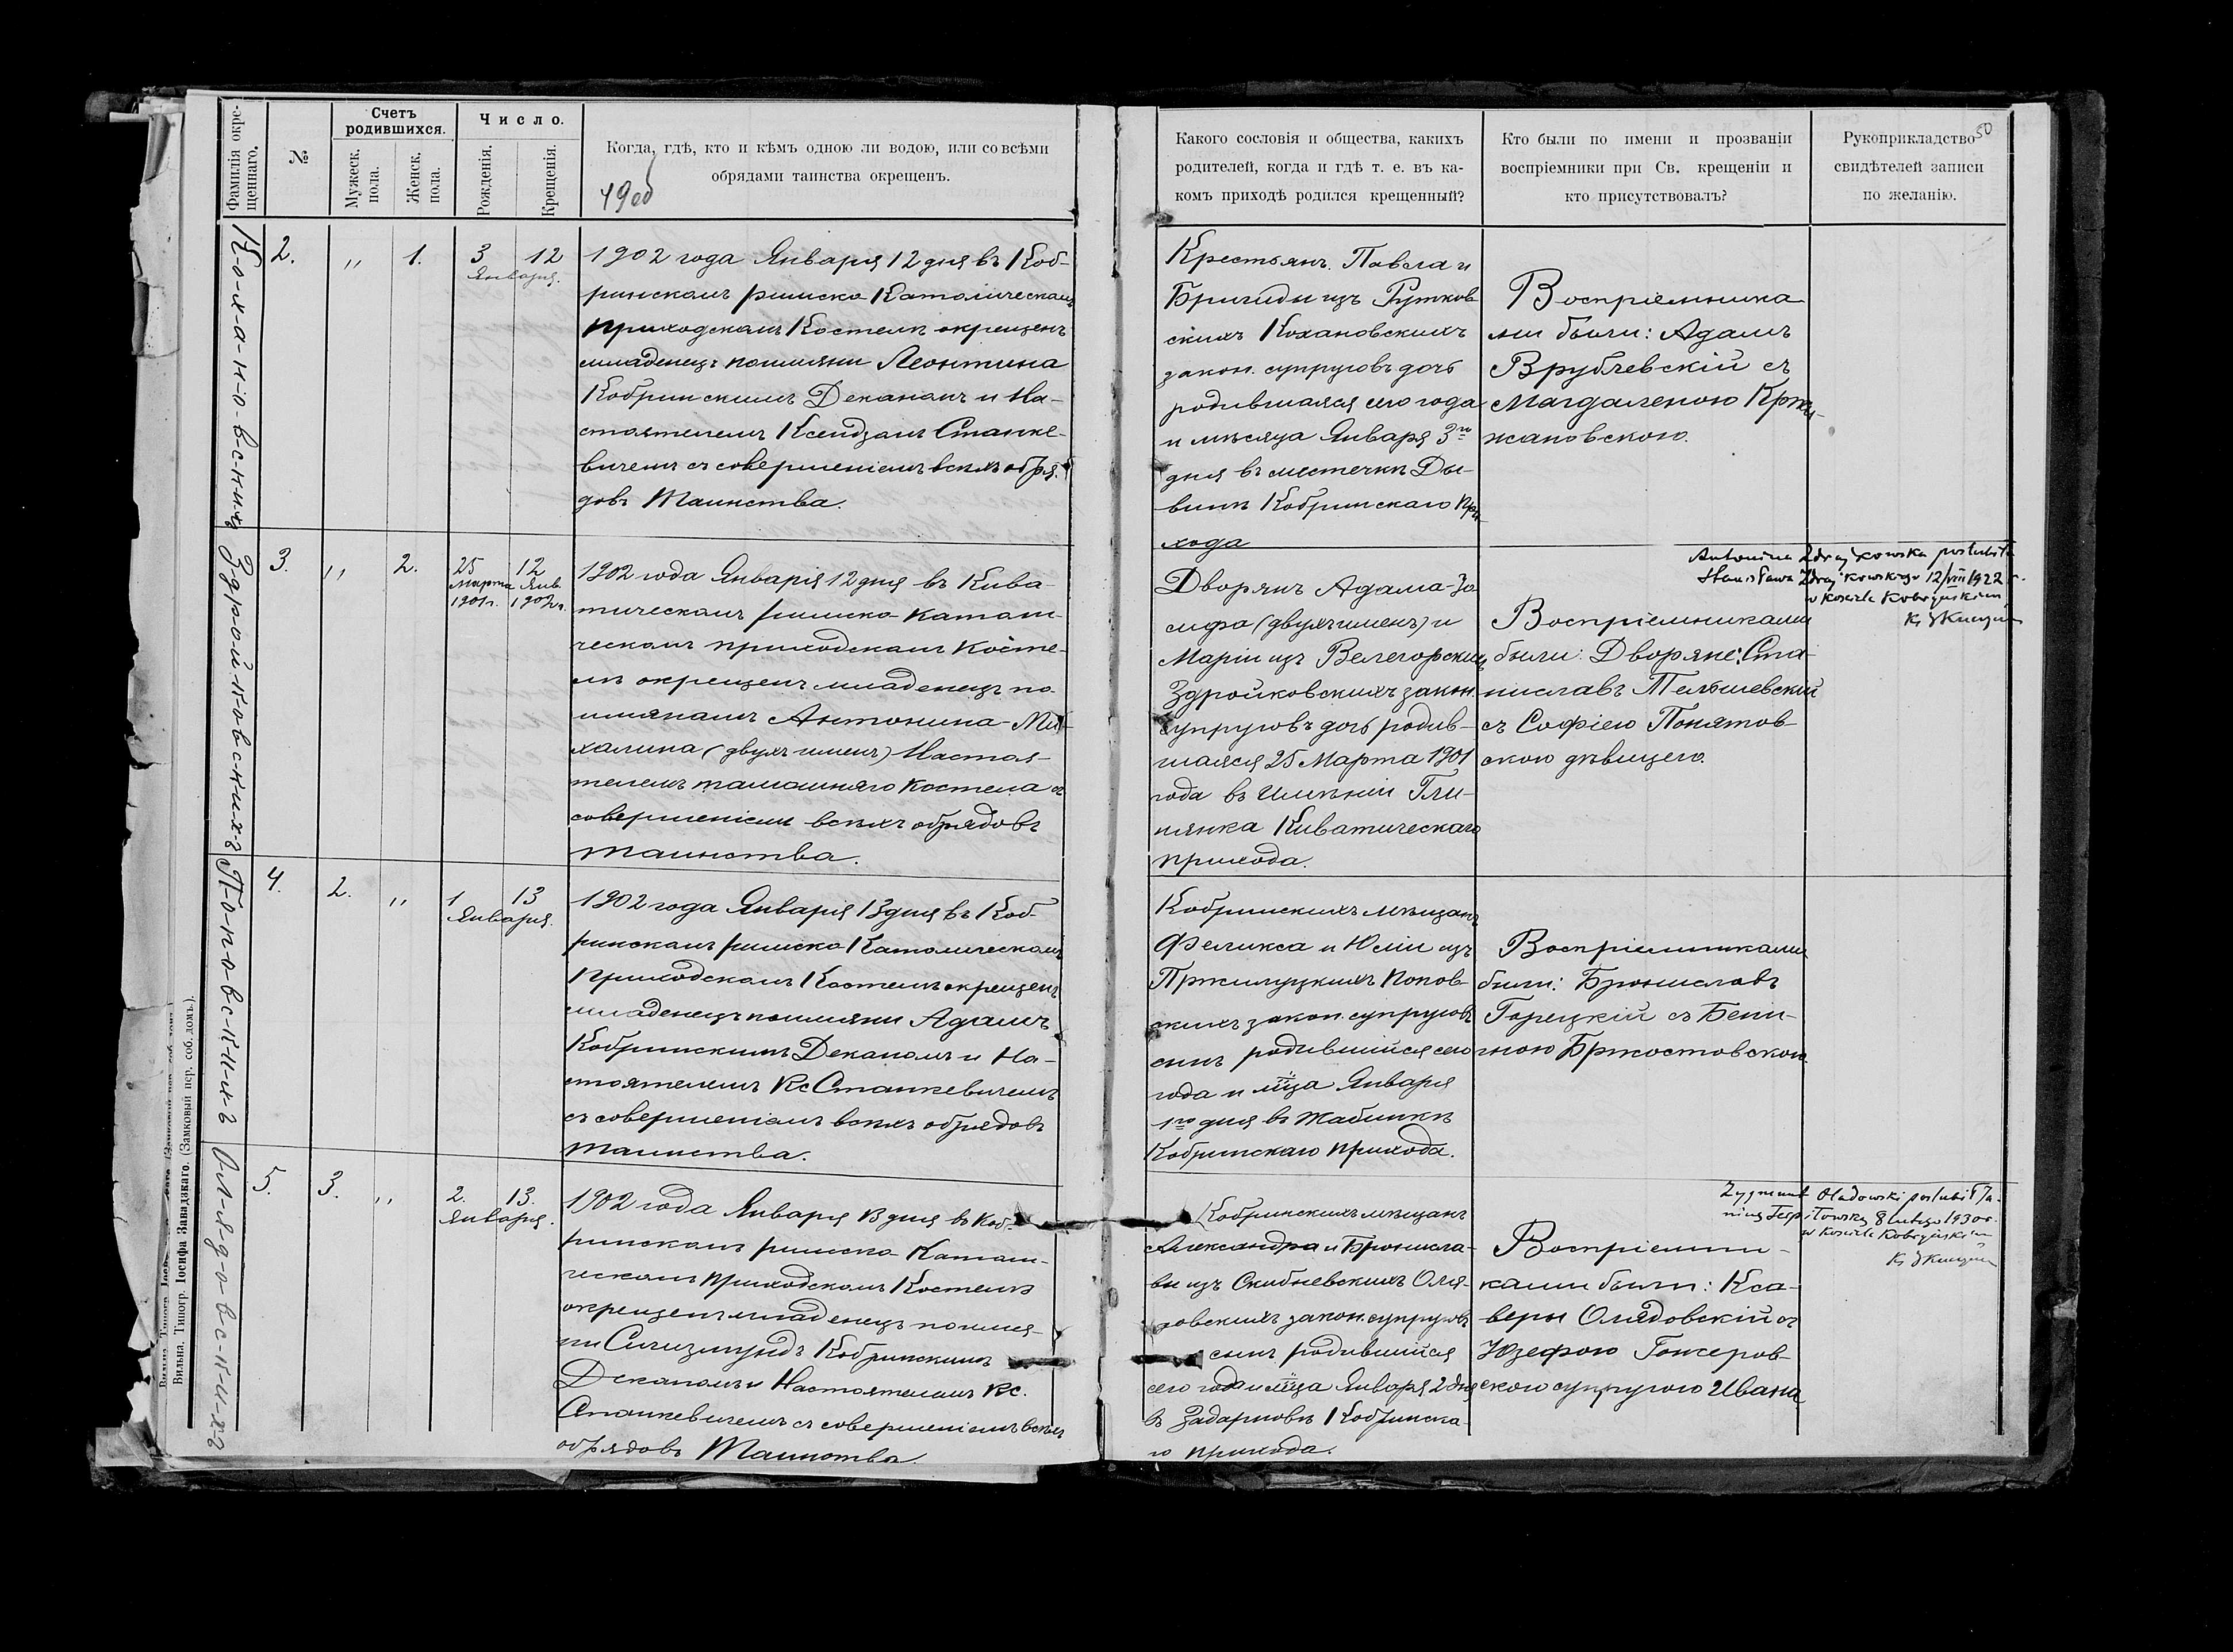 Фамилія окре-
щеннаго.
№
Счетъ
родившихся.
Мужеск.
пола.
Женск.
пола.
Число.
Рожденія.
Крещенія.
Когда, гдѣ, кто и кѣмъ одною ли водою, или со всѣми
обрядами таинства окрещенъ.
Какого сословія и общества, какихъ
родителей, когда и гдѣ т. е. въ ка-
комъ приходѣ родился крещенный?
Кто были по имени и прозваніи
воспріемники при Св. крещеніи и
кто присутствовалъ?
Рукоприкладство
свидѣтелей записи
по желанію.
50
К-о-х-а-н-о-в-с-к-и-хъ
2.
"
1.
3 12
Января.
1902 года Января 12 дня въ Коб-
ринскомъ римско Католическомъ
Приходскомъ Костелѣ окрещенъ
младенецъ по имяни Леонтина
Кобринскимъ Деканомъ и На-
стоятелемъ Ксендзомъ Станке-
вичемъ съ совершеніемъ всѣхъ обря-
довъ Таинства.
Крестьянъ Павела и
Бригиды изъ Рутков
скихъ Кохановскихъ
закон. супруговъ дочь
родившаяся сего года
и мѣсяца Января 3го
дня въ местечкѣ Ды-
винѣ Кобринскаго При
хода
Воспріемника
ми были: Адамъ
Врублевскій съ
Магдаленою Кржи-
жановскою.
З-д-р-о-й-к-о-в-с-к-и-х-ъ
3.
"
2.
25 12
Марта Янв.
1901г. 1902г.
1902 года Январія 12 дня въ Кива-
тическомъ римско-католи-
ческомъ приходскомъ Косте-
лѣ окрещенъ младенецъ по
имянамъ Антонина-Ми-
халина (двухъ именъ) Настоя-
телемъ тамошняго Костела съ
совершеніемъ всѣхъ обрядовъ
Таинства.
Дворянъ Адама-Іо-
сифа (двухъ именъ) и
Маріи изъ Велегорскихъ
Здройковскихъ закон.
супруговъ дочь родив-
шаяся 25 Марта 1901
года въ Имѣніи Гли-
нянка Киватическаго
прихода.
Воспріемниками
были: Дворяне: Ста-
ниславъ Тельшевскій
съ Софіею Понятов-
скою дѣвицею.
Antonina Zdrojkowska poślubiła
Stanisława Zdrojkowskiego 12/VIII 1922 r.
w Kościele Kobryńskim
П-о-п-о-в-с-к-и-х-ъ
4.
2.
"
1 13
Января.
1902 года Января 13 дня въ Коб-
ринскомъ римско Католическомъ
Приходскомъ Костелѣ окрещенъ
младенецъ по имяни Адамъ
Кобринскимъ Деканомъ и На-
стоятелемъ Кс Станкевичемъ
съ совершеніемъ всѣхъ обрядовъ
Таинства.
Кобринскихъ мѣщанъ
Феликса и Юліи изъ
Пржилуцкихъ Попов-
скихъ закон. супруговъ
сынъ родившійся сего
года и мца Января
1го дня въ Жабинкѣ
Кобринскаго прихода.
Воспріемниками
были: Брониславъ
Горецкій съ Бени-
ною Бржостовскою
О-л-я-д-о-в-с-к-и-х-ъ
5.
3.
"
2. 13.
Января.
1902 года Января 13 дня въ Коб-
ринскомъ римско Католи-
ческомъ Приходскомъ Костелѣ
окрещенъ младенецъ по имя-
ни Сигизмундъ Кобринскимъ
Деканомъ и Настоятелемъ Кс.
Станкевичемъ съ совершеніемъ всѣхъ
обрядовъ Таинства
Кобринскихъ мѣщанъ
Александра и Бронисла-
вы изъ Скибневскихъ Оля-
довскихъ закон. супруговъ
сынъ родившійся
сего года и мца Января 2 дня
въ Задарновѣ Кобринска-
го прихода.
Воспріемни-
ками были: Кса-
веры Олядовскій съ
Юзефою Гонсеров-
скою супругою Ивана
Zygmunt Oladowski poślubił Ja-
ninę 8 lutego 1930 r.
w Kościele Kobryńskim
Вильна. Типогр. Іосифа Завадзкаго. (Замковый пер. соб. домъ.).